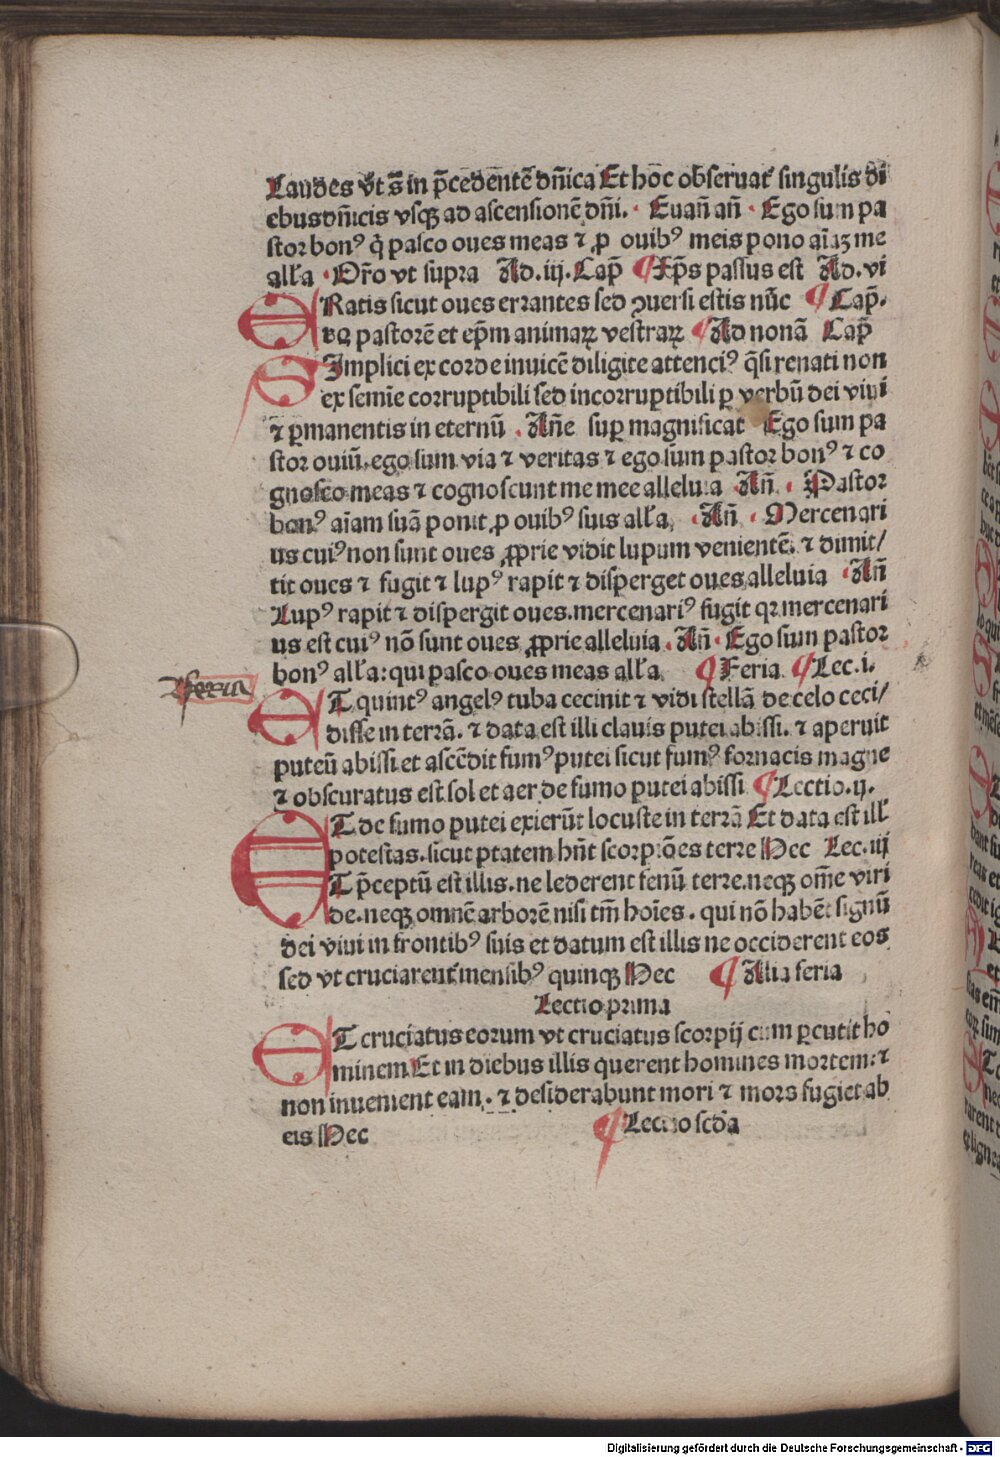 Laudes vt s̄ in p̄cedentē dn̄ica Et hōc obseruat᷑ singulis di
ebus dn̄icis vsqꝫ ad ascensionē dn̄i. Euan̄ an̄ Ego sum pa
stor bonꝰ q̇ pasco oues meas ⁊ ꝓ ouibꝰ meis pono aīaꝫ me
all'a Or̄o vt supra Ad .iij. Cap̄ ¶ Xp̄s passus est Ad .vi
ERatis sicut oues errantes sed ꝯuersi estis nūc ¶ Cap̄.
pastorē et ep̄m animaꝝ vestraꝝ ¶ Ad nonā Cap̄
SImplici ex corde inuicē diligite attenciꝰ q̄si renati non
ex semīe corruptibili sed incorruptibili ꝑ verbū dei viui
⁊ ꝑmanentis in eternū . An̄e suꝑ magnificat Ego sum pa
stor ouiū. ego sum via ⁊ veritas ⁊ ego sum pastor bonꝰ ⁊ co
gnosco meas ⁊ cognoscunt me mee alleluia An̄ Pastor
bonꝰ aīam suā ponit ꝓ ouibꝰ suis all'a. An̄ Mercenari
us cuiꝰ non sunt oues ꝓprie vidit lupum venientē. ⁊ dimit/
tit oues ⁊ fugit ⁊ lupꝰ rapit ⁊ disperget oues alleluia An̄
Lupꝰ rapit ⁊ dispergit oues. mercenariꝰ fugit qꝛ mercenari
us est cuiꝰ nō sunt oues ꝓprie alleluia An̄ Ego sum pastor
bonꝰ all'a: qui pasco oues meas all'a ¶ Feria ¶ Lec. i.
feria
ET quintꝰ angelꝰ tuba cecinit ⁊ vidi stellā de celo ceci/
disse in terrā. ⁊ data est illi clauis putei abissi. ⁊ aperuit
puteū abissi et ascēdit fumꝰ putei sicut fumꝰ fornacis magne
⁊ obscuratus est sol et aer de fumo putei abissi ¶ Lectio. ij.
ET de fumo putei exierūt locuste in terrā Et data est ill'
potestas. sicut ptatem hn̄t scorpiōes terre Hec Lec. iij
ET p̄ceptū est illis. ne lederent fenū terre. neqꝫ om̄e viri
de. neqꝫ omnē arborē nisi tm̄ hoīes. qui nō habēt signū
dei viui in frontibꝰ suis et datum est illis ne occiderent eos
sed vt cruciarent᷑ mensibꝰ quinqꝫ Hec ¶ Alia feria
Lectio prima
ET cruciatus eorum vt cruciatus scorpij cum ꝑcutit ho
minem Et in diebus illis querent homines mortem: ⁊
non inuenient eam. ⁊ desiderabunt mori ⁊ mors fugiet ab
eis Hec ¶ Lectio scd̄a
Digitalisierung gefördert durch die Deutsche Forschungsgemeinschaft - DFG